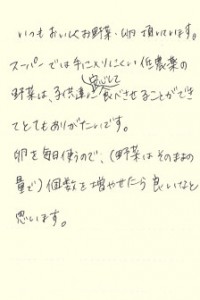 いつもおいしくお野菜・卵頂いています。
スーパーでは手に入りにくい低農薬の
安心して
野菜は、子供達に食べさせることができ
てとてもありがたいです。
卵を毎日使うので、(野菜はそのままの
量で)個数を増やせたら良いなと
思います。